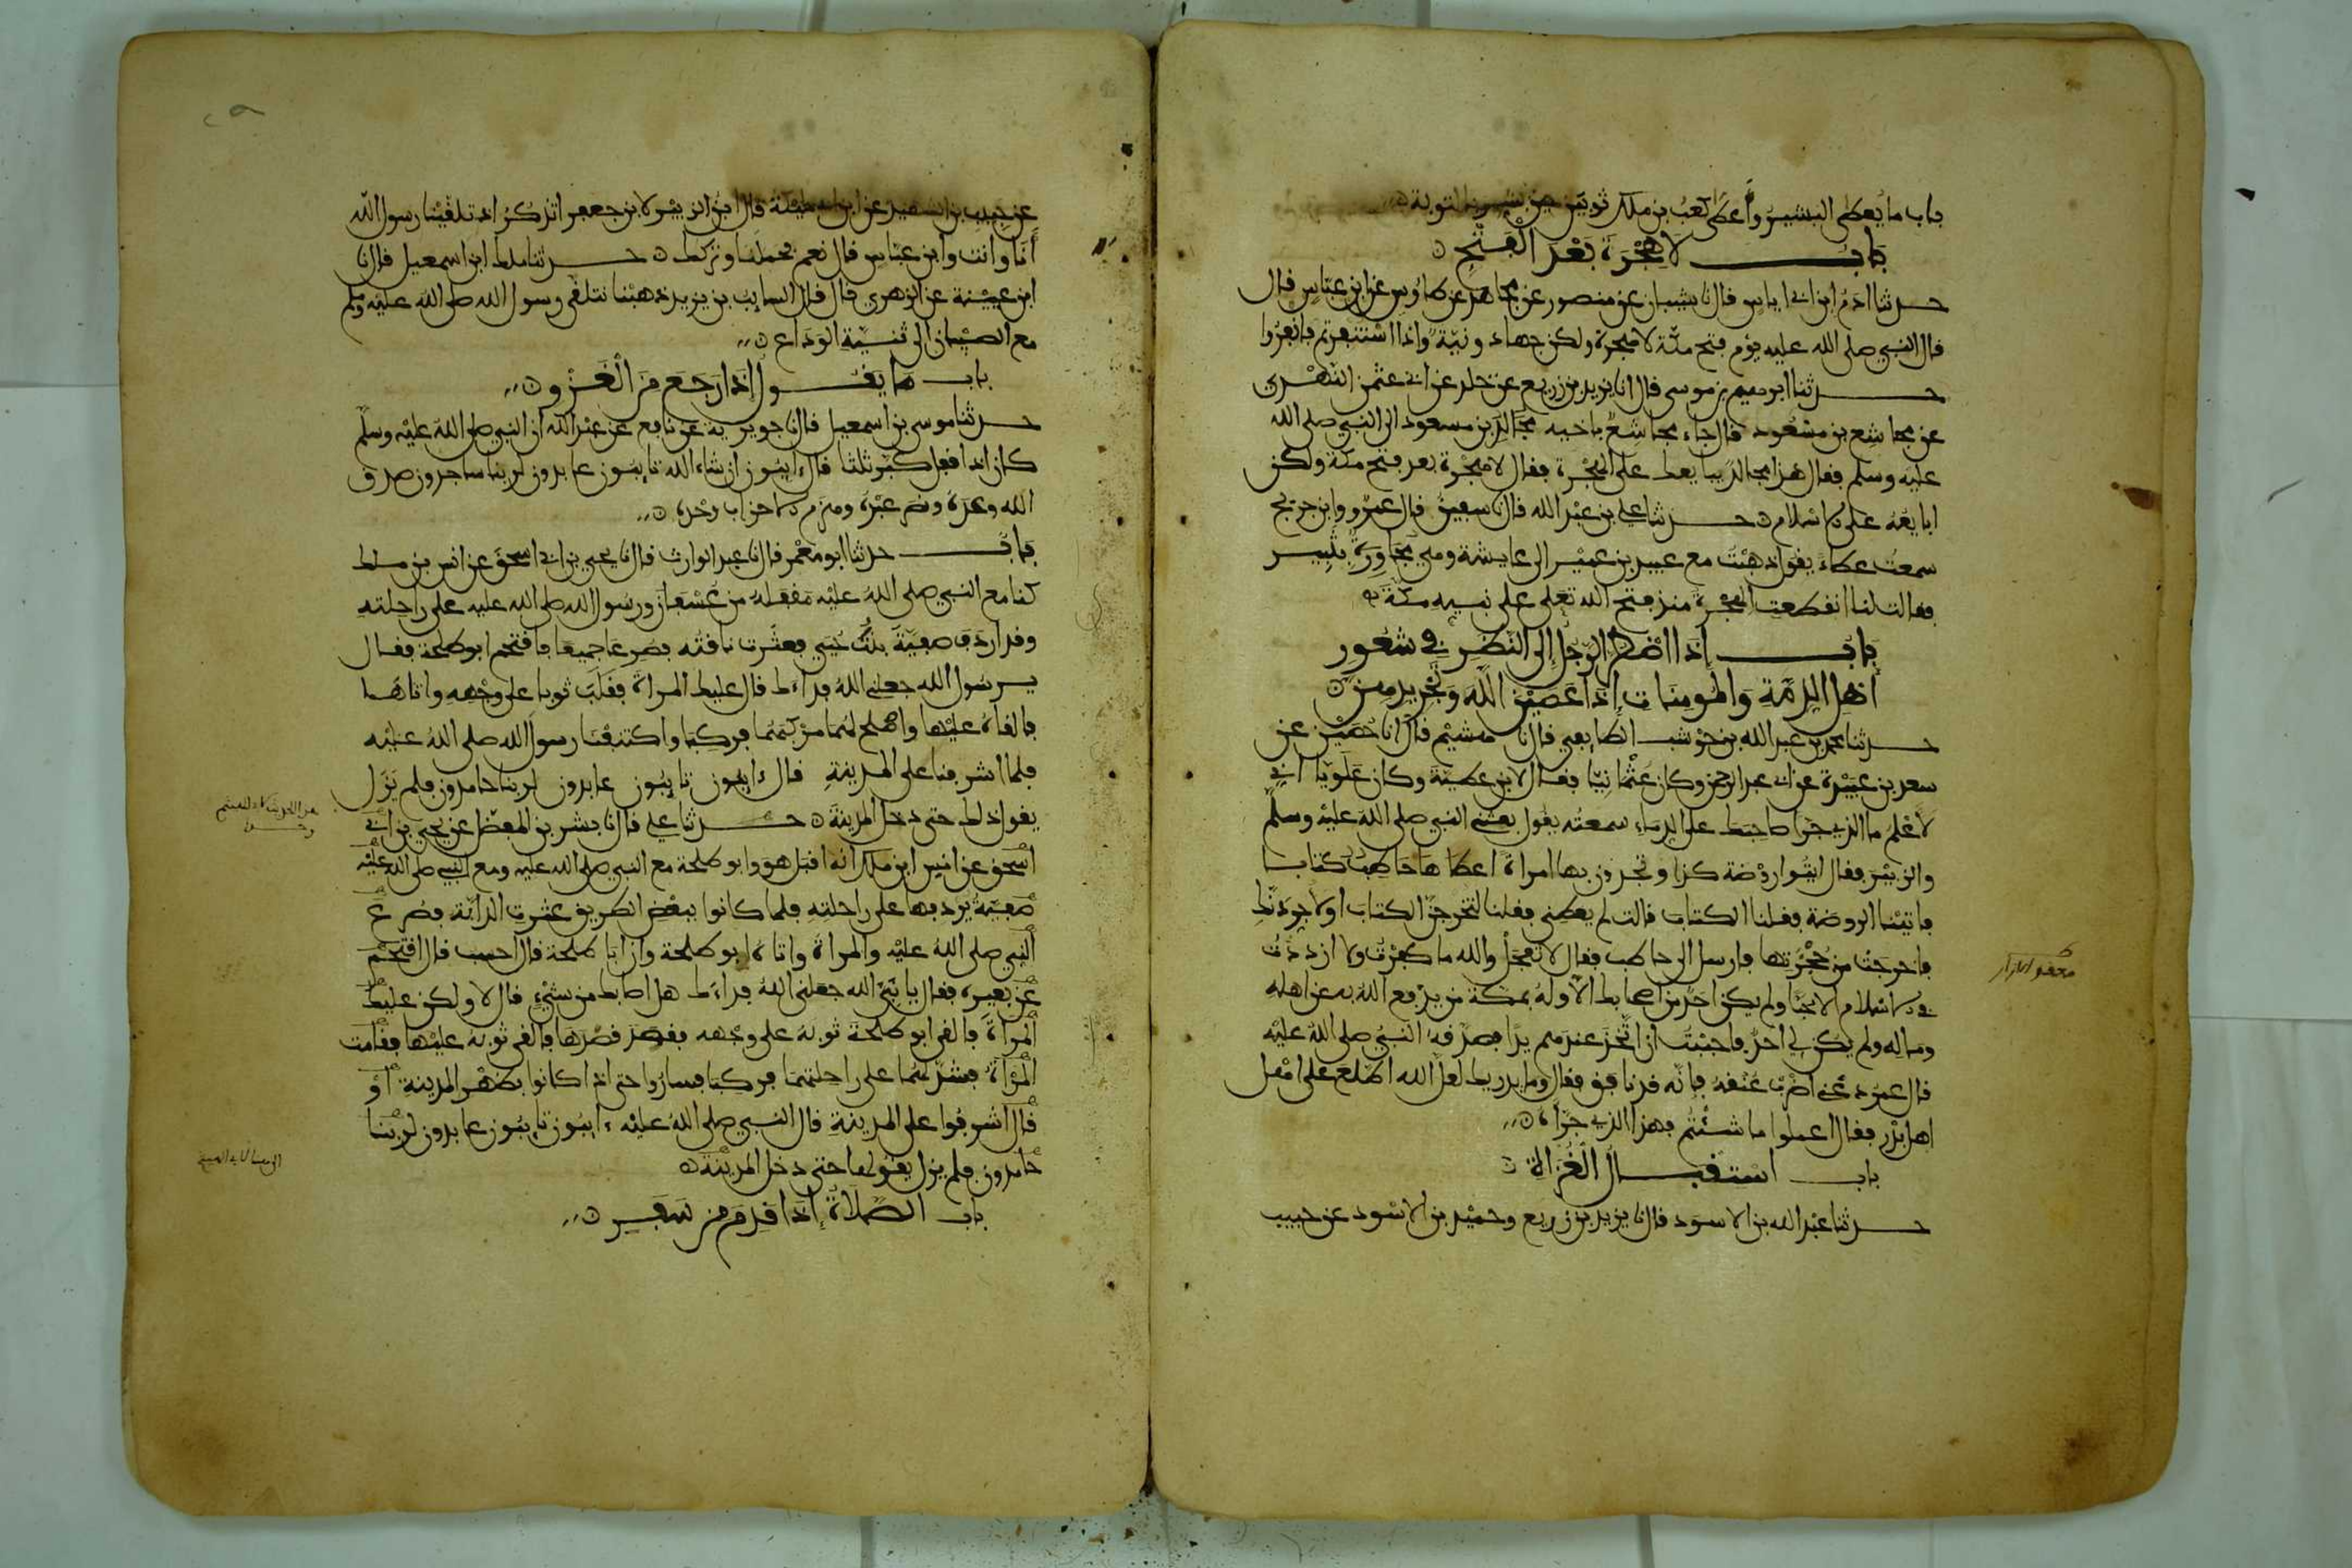 باب ما يعطى البشير وأعطى كعب بن ملك ثوبين حين بشر بالتوبة
باب لا هجرة بعد الفتح
حدثنا ادم ابن ابي اياس قال نا شيبان عن منصور عن مجاهد عن طاوس عن ابن عباس قال
قال النبي صلى الله عليه يوم فتح مكة لا هجرة ولكن جهاد ونية واذا استنفرتم فانفروا
حدثنا ابرهيم بن موسى قال انا يزيد بن زريع عن خلد عن ابي عثمن النهدي
عن مجاشع بن مسعود قال جاء مجاشع باخيه مجالد بن مسعود الى النبي صلى الله
عليه وسلم فقال هذا مجالد يبايعك على الهجرة فقال لا هجرة بعد فتح مكة ولكن
ابايعه على الاسلام حدثنا علي بن عبد الله قال نا سفين قال عمرو وابن جريج
سمعت عطاء يقول ذهبت مع عبيد بن عمير الى عايشة وهي مجاورة بثبير
فقالت لنا انقطعت الهجرة منذ فتح الله تعلى على نبيه مكة
باب إذا اضطر الرجل إلى النظر في شعور
اهل الذمة والمومنات إذا عصين الله وتجريدهن
حدثنا محمد بن عبد الله بن حوشب الطايفي قال نا هشيم قال انا حصين عن
سعد بن عبيدة عن ابي عبد الرحمن وكان عثمانيا فقال لابن عطية وكان علويا اني
لأعلم ما الذي جرا صاحبك على الدماء سمعته يقول بعثني النبي صلى الله عليه وسلم
والزبير فقال ايتوا روضة كذا وتجدون بها امراة اعطاها حاطب كتابا
فاتينا الروضة فقلنا الكتاب قالت لم يعطني فقلنا لتخرجن الكتاب او لاجردنك
فاخرجت من حجزتها فارسل الى حاطب فقال لا تعجل والله ما كفرت ولا ازددت
في الاسلام الا حبا ولم يكن احد من اصحابك الا وله بمكة من يدفع الله به عن اهله
وماله ولم يكن لي احد فاحببت ان اتخذ عندهم يدا فصدقه النبي صلى الله عليه
قال عمر دعني اضرب عنقه فانه قد نافق فقال وما يدريك لعل الله اطلع على اهل
اهل بدر فقال اعملوا ما شئتم فهذا الذي جراه
باب استقبال الغزاة
حدثنا عبد الله بن الاسود قال نا يزيد بن زريع وحميد بن الاسود عن حبيب
عن حبيب بن الشهيد عن ابن ابي مليكة قال ابن الزبير لابن جعفر اتذكر اذ تلقينا رسول الله
أنا وانت وابن عباس قال نعم فحملنا وتركك حدثنا ملك ابن اسمعيل قال نا
ابن عيينة عن الزهري قال قال السايب بن يزيد ذهبنا نتلقى رسول الله صلى الله عليه وسلم
مع الصبيان الى ثنية الوداع
باب ما يقول إذا رجع من الغزو
حدثنا موسى بن اسمعيل قال نا جويرية عن نافع عن عبد الله ان النبي صلى الله عليه وسلم
كان اذا قفل كبر ثلثا قال ايبون ان شاء الله تايبون عابدون لربنا ساجدون صدق
الله وعده ونصر عبده وهزم الاحزاب وحده
باب حدثنا ابو معمر قال نا عبد الوارث قال نا يحيى بن ابي اسحق عن انس بن ملك
كنا مع النبي صلى الله عليه مقفله من عسفان ورسول الله صلى الله عليه على راحلته
وقد اردف صفية بنت حيي فعثرت ناقته فصرعا جميعا فاقتحم ابو طلحة فقال
يرسول الله جعلني الله فداءك قال عليك المراة فقلب ثوبا على وجهه واتاها
فالقاه عليها واصلح لهما مركبهما فركبا واكتنفنا رسول الله صلى الله عليه
فلما اشرفنا على المدينة قال ءايبون تايبون عابدون لربنا حامدون فلم يزل
يقول ذلك حتى دخل المدينة حدثنا علي قال نا بشر بن المفضل عن يحيى بن ابي
اسحق عن انس ابن ملك انه اقبل هو وابو طلحة مع النبي صلى الله عليه ومع النبي صلى الله عليه
صفية يردفها على راحلته فلما كانوا ببعض الطريق عثرت الدابة فصرع
النبي صلى الله عليه والمراة واتاه ابو طلحة وان ابا طلحة قال احسب قال اقتحم
عن بعيره فقال يا نبي الله جعلني الله فداءك هل اصابك من شيء قال لا ولكن عليك
المراة فالقى ابو طلحة ثوبه على وجهه فقصد قصدها فالقى ثوبه عليها فقامت
المراة فشد لهما على راحلتهما فركبا فساروا حتى اذا كانوا بظهر المدينة أو
قال اشرفوا على المدينة قال النبي صلى الله عليه ءايبون تايبون عابدون لربنا
حامدون فلم يزل يقولها حتى دخل المدينة
باب الصلاة إذا قدم من سفر